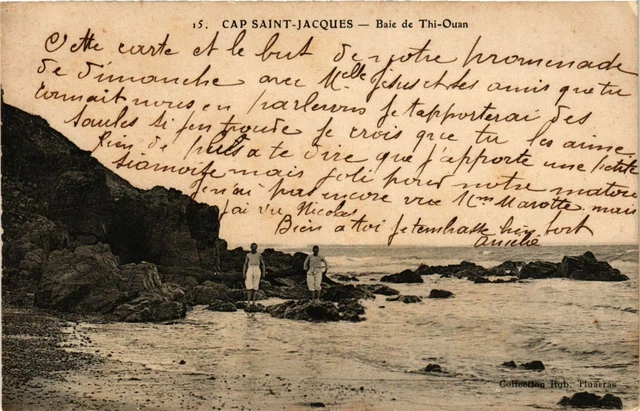 15. CAP SAINT-JACQUES — Baie de Thi-Ouan
Cette carte et le but de notre promenade
de dimanche avec Mlle et ses amis que tu
connait nous en parlerons Je t'apporterai des
si j'en trouve je crois que tu les aime
Rien de plus a te dire que j'apporte une petite
siamoise mais joli pour notre
Je n'ai pas encore vue Mme Marotte mais
j'ai vu Nicolas
Bien a toi Je t'embrasse bien fort
Amélie
Collection Rub. Tluarras